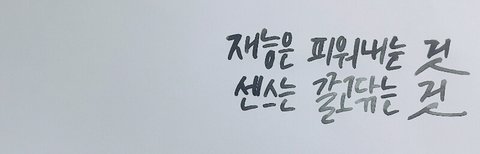 재능은 피워내는 것
센스는 갈고닦는 것